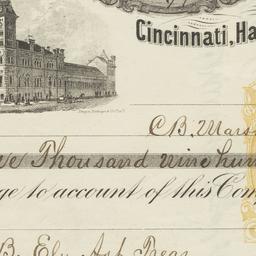 Cincinnati, Ha
C.B. Marsh
ve Thousand nine hun
ge to account of this Com
B. Ely Asst Treas